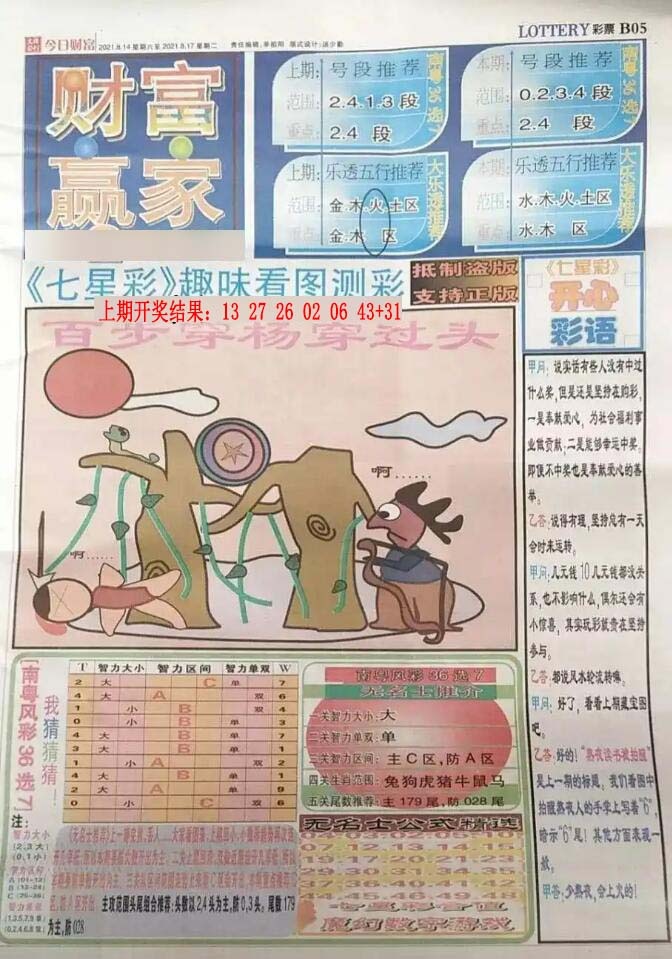 今日财富
2021.8.14 星期六至 2021.8.17 星期二
LOTTERY 彩票 B05
财富
赢家
上期: 号段推荐
范围: 2.4.1.3 段
重点: 2.4 段
南粤36选7
本期: 号段推荐
范围: 0.2.3.4 段
重点: 2.4 段
南粤36选7
上期: 乐透五行推荐
范围: 金.木.火.土区
重点: 金.木 区
大乐透推荐
本期: 乐透五行推荐
范围: 水.木.火.土区
重点: 水.木 区
大乐透推荐
《七星彩》趣味看图测彩
抵制盗版
支持正版
上期开奖结果: 13 27 26 02 06 43+31
百步穿杨穿过头
啊……
啊……
《七星彩》
开心
彩语
甲问: 说实话有些人没有中过
什么奖,但是还是坚持在购彩。
一是奉献爱心, 为社会福利事
业做贡献,二是能够幸运中奖。
即使不中奖也是奉献爱心的善
举。
乙答: 说得有理,坚持总有一天
会时来运转。
甲问: 几元钱10几元钱都没关
系,也不影响什么,偶尔还会有
小惊喜, 其实玩彩就贵在坚持
参与。
乙答: 都说风水轮流转嘛。
甲问: 好了, 看看上期藏宝图
吧。
乙答: 好的!“熬夜读书被拍醒”
是上一期的标题。我们看图中
拍醒熬夜人的手掌上写着“6”,
暗示“6”尾! 其他方面表现一
般。
甲答: 少熬夜、会上火的!
南粤风彩36选7
我猜猜猜……
T 智力大小 智力区间 智力单双 W
2 大 C 单 7
4 大 A 双 6
1 小 B 双 4
0 小 B 单 3
4 大 B 单 7
3 大 B 单 1
1 小 A 双 2
4 大 A 单 9
0 小 C 双 6
注:
智力大小
(2,3大)
(0,1小)
智力区间
A (01-12)
B (13-24)
C (25-36)
智力单双
(1,3,5,7,9单)
(0,2,4,6,8双)
主攻范围头尾组合推荐:头数以2,4头为主,防0,3头。尾数179
为主,防028
南粤风彩36选7
无名士推介
一关智力大小: 大
二关智力单双: 单
三关智力区间: 主C区,防A区
四关生肖范围: 兔狗虎猪牛鼠马
五关尾数推荐: 主179尾,防028尾
无名士公式精选
七星彩合值
魔幻数字游戏